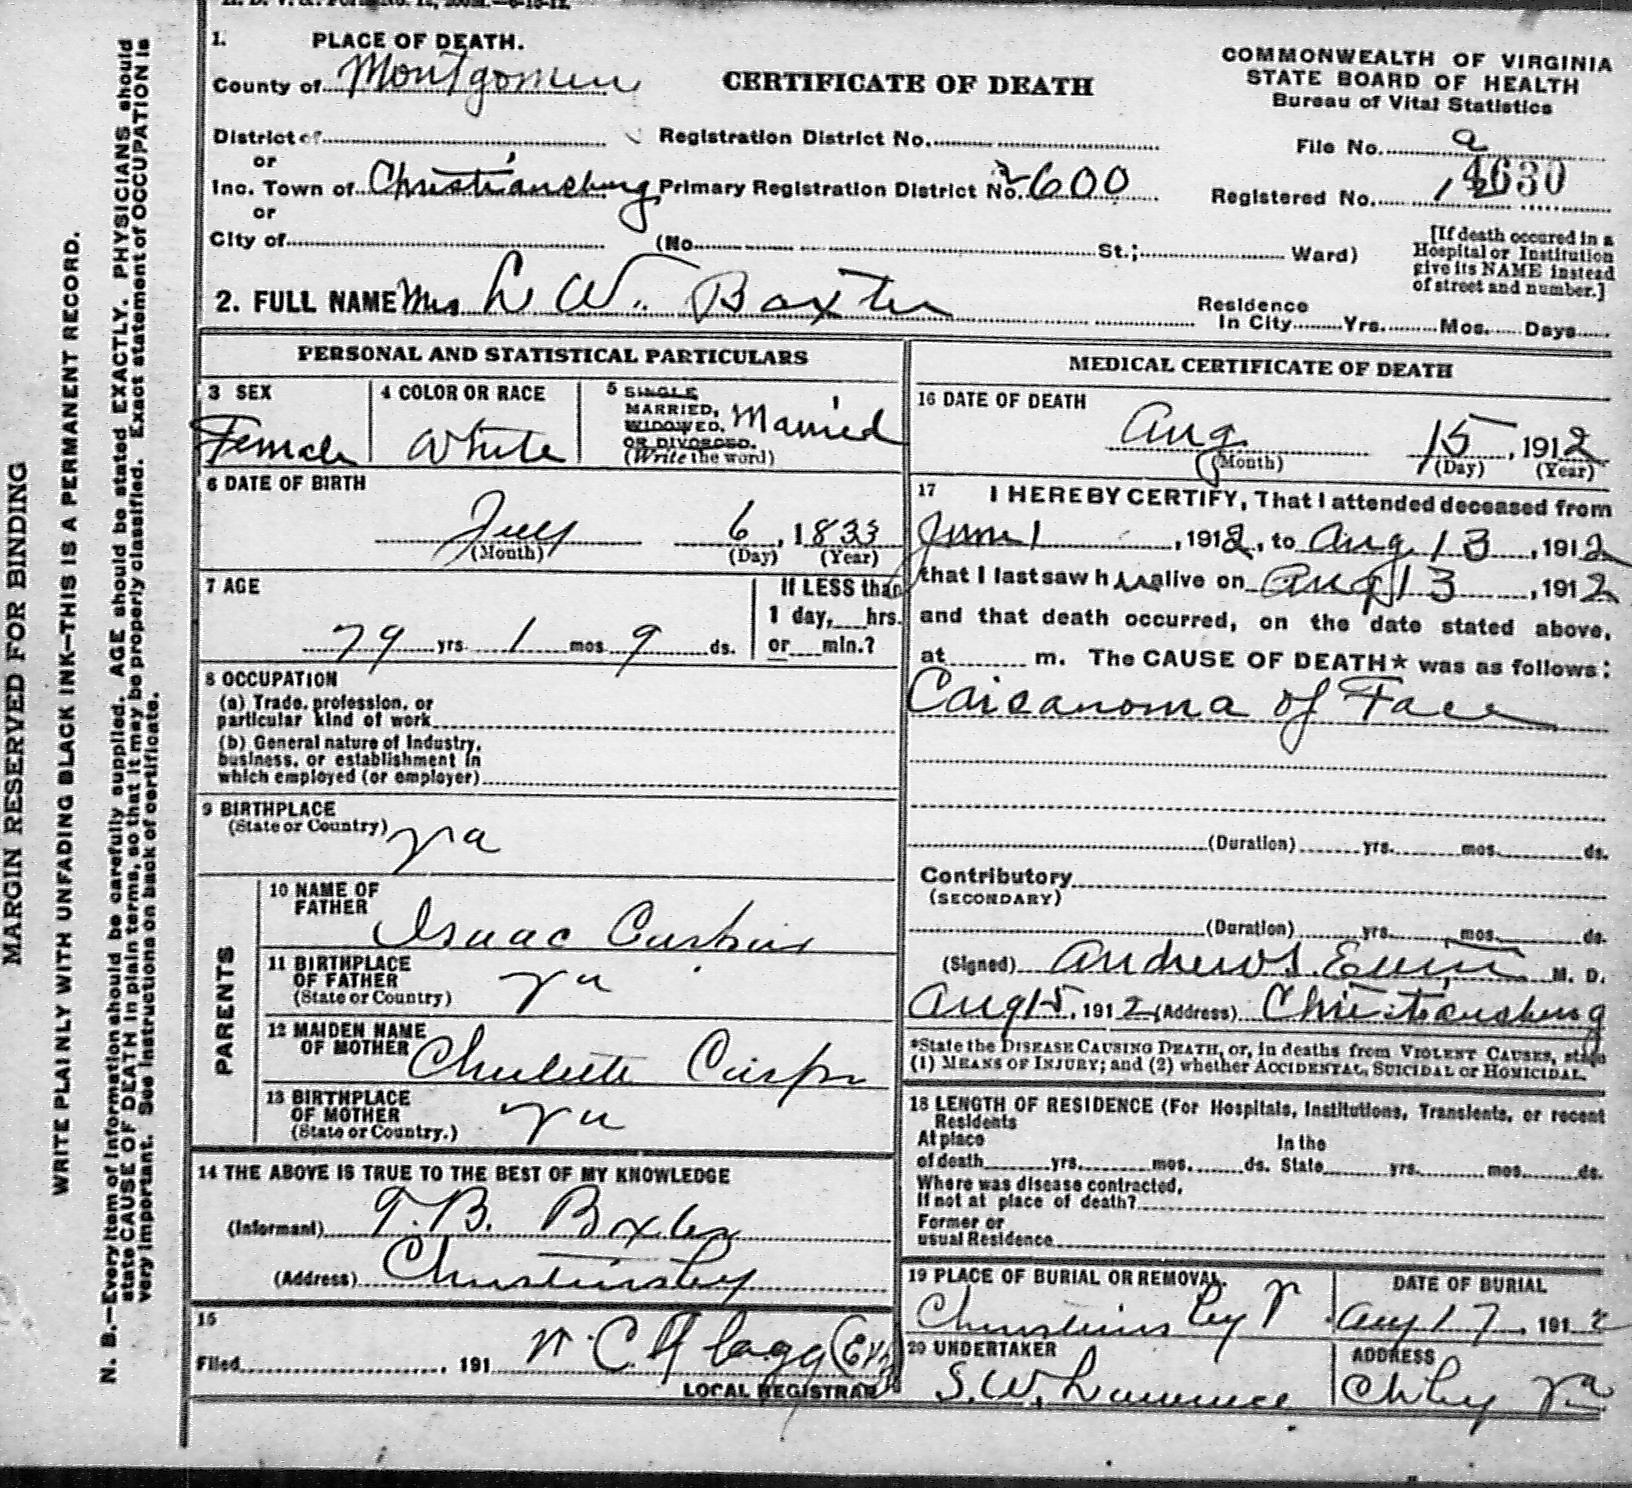 1. PLACE OF DEATH.
County of Montgomery
CERTIFICATE OF DEATH
COMMONWEALTH OF VIRGINIA
STATE BOARD OF HEALTH
Bureau of Vital Statistics
District of
or
Inc. Town of Christiansburg
or
City of (No. St.; Ward)
Registration District No.
Primary Registration District No. 2600
File No.
4630
Registered No.
[If death occured in a
Hospital or Institution
give its NAME instead
of street and number.]
2. FULL NAME Mrs L W. Baxter
Residence
In City Yrs. Mos. Days
PERSONAL AND STATISTICAL PARTICULARS
3 SEX
Female
4 COLOR OR RACE
White
5 SINGLE,
MARRIED,
WIDOWED,
OR DIVORCED.
(Write the word)
Married
6 DATE OF BIRTH
July 6, 1833
(Month) (Day) (Year)
7 AGE
79 yrs. 1 mos. 9 ds.
If LESS than
1 day,___hrs.
or___min.?
8 OCCUPATION
(a) Trade, profession, or
particular kind of work
(b) General nature of Industry,
business, or establishment in
which employed (or employer)
9 BIRTHPLACE
(State or Country) Va
PARENTS
10 NAME OF
FATHER
Isaac
11 BIRTHPLACE
OF FATHER
(State or Country) Va
12 MAIDEN NAME
OF MOTHER
13 BIRTHPLACE
OF MOTHER
(State or Country.) Va
14 THE ABOVE IS TRUE TO THE BEST OF MY KNOWLEDGE
(Informant) T.B. Baxter
(Address)
15
Filed , 191
C Flagg
LOCAL REGISTRAR
MEDICAL CERTIFICATE OF DEATH
16 DATE OF DEATH
Aug 15, 1912
(Month) (Day) (Year)
17 I HEREBY CERTIFY, That I attended deceased from
June 1, 1912, to Aug 13, 1912
that I last saw her alive on Aug 13, 1912
and that death occurred, on the date stated above,
at m. The CAUSE OF DEATH* was as follows:
Carcanoma of Face
(Duration) yrs. mos. ds.
Contributory
(SECONDARY)
(Duration) yrs. mos. ds.
(Signed) Andrew S. M. D.
Aug 15, 1912 (Address) Christiansburg
*State the DISEASE CAUSING DEATH, or, in deaths from VIOLENT CAUSES, state
(1) MEANS OF INJURY; and (2) whether ACCIDENTAL, SUICIDAL or HOMICIDAL.
18 LENGTH OF RESIDENCE (For Hospitals, Institutions, Transients, or recent
Residents
At place In the
of death yrs. mos. ds. State yrs. mos. ds.
Where was disease contracted,
If not at place of death?
Former or
usual Residence
19 PLACE OF BURIAL OR REMOVAL.
DATE OF BURIAL
Aug 17, 1912
20 UNDERTAKER
S.W. Lawrence
ADDRESS
Va
MARGIN RESERVED FOR BINDING
WRITE PLAINLY WITH UNFADING BLACK INK—THIS IS A PERMANENT RECORD.
N. B.—Every item of information should be carefully supplied. AGE should be stated EXACTLY. PHYSICIANS should
state CAUSE OF DEATH in plain terms, so that it may be properly classified. Exact statement of OCCUPATION is
very important. See instructions on back of certificate.